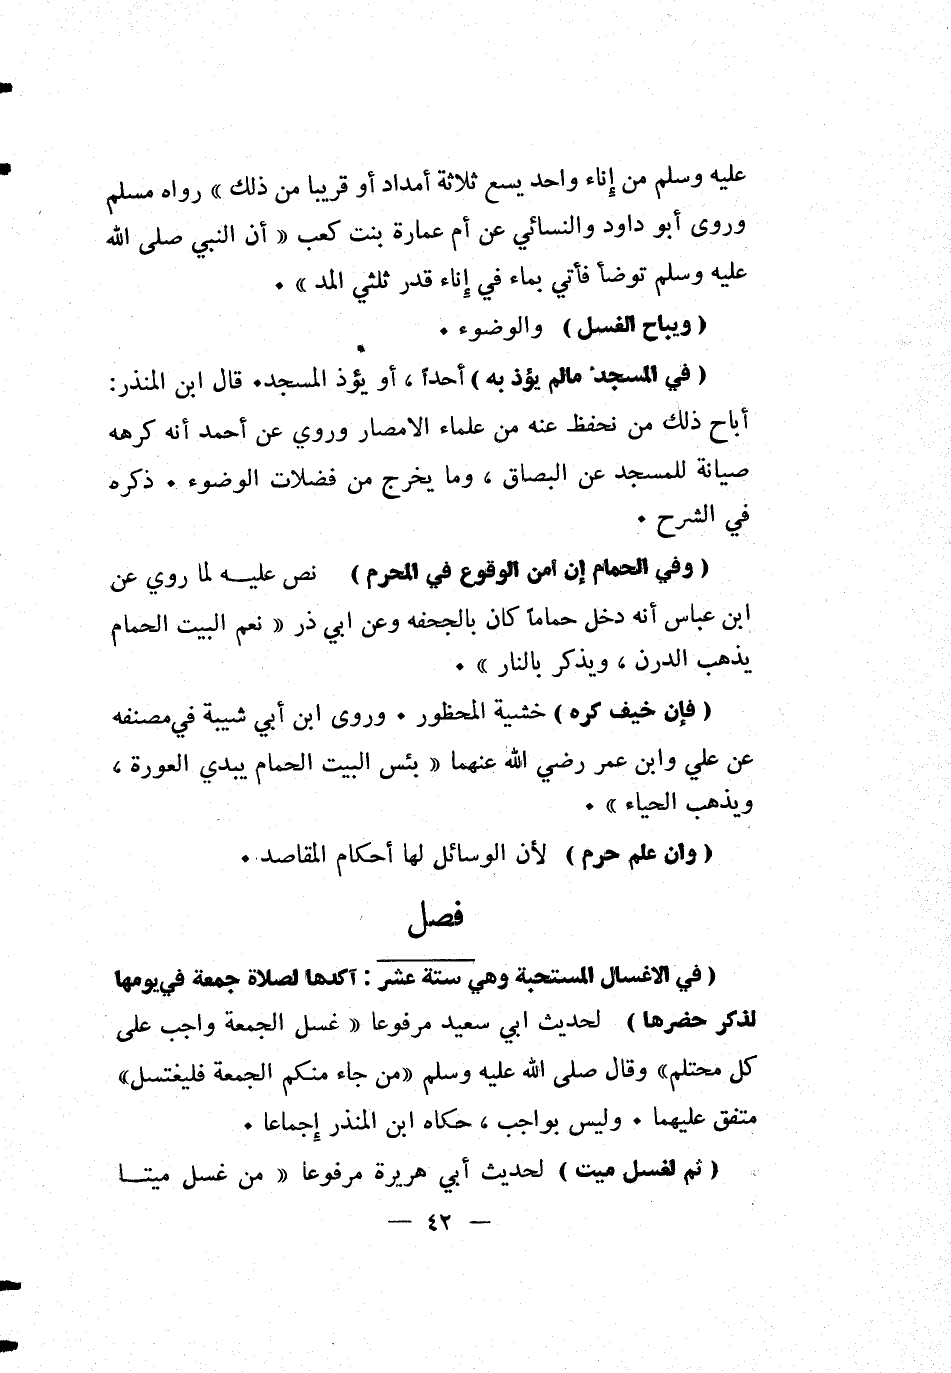 عليه وسلم من إناء واحد يسع ثلاثة أمداد أو قريبا من ذلك » رواه مسلم
وروى أبو داود والنسائي عن أم عمارة بنت كعب « أن النبي صلى الله
عليه وسلم توضأ فأتي بماء في إناء قدر ثلثي المد » ٠
( ويباح الغسل ) والوضوء ٠
( في المسجد مالم يؤذ به ) أحداً ، أو يؤذ المسجد٠ قال ابن المنذر:
أباح ذلك من نحفظ عنه من علماء الامصار وروي عن أحمد أنه كرهه
صيانة للمسجد عن البصاق ، وما يخرج من فضلات الوضوء ٠ ذكره
في الشرح ٠
( وفي الحمام إن امن الوقوع في المحرم ) نص عليـــه لما روي عن
ابن عباس أنه دخل حماماً كان بالجحفه وعن ابي ذر « نعم البيت الحمام
يذهب الدرن ، ويذكر بالنار » ٠
( فإن خيف كره ) خشية المحظور ٠ وروى ابن أبي شيبة في مصنفه
عن علي وابن عمر رضي الله عنهما « بئس البيت الحمام يبدي العورة ،
ويذهب الحياء » ٠
( وان علم حرم ) لأن الوسائل لها أحكام المقاصد ٠
فصل
( في الاغسال المستحبة وهي ستة عشر : آكدها لصلاة جمعة في يومها
لذكر حضرها ) لحديث ابي سعيد مرفوعا « غسل الجمعة واجب على
كل محتلم» وقال صلى الله عليه وسلم «من جاء منكم الجمعة فليغتسل»
متفق عليهما ٠ وليس بواجب ، حكاه ابن المنذر إجماعا ٠
( ثم لغسل ميت ) لحديث أبي هريرة مرفوعا « من غسل ميتـــا
— ٤٢ —